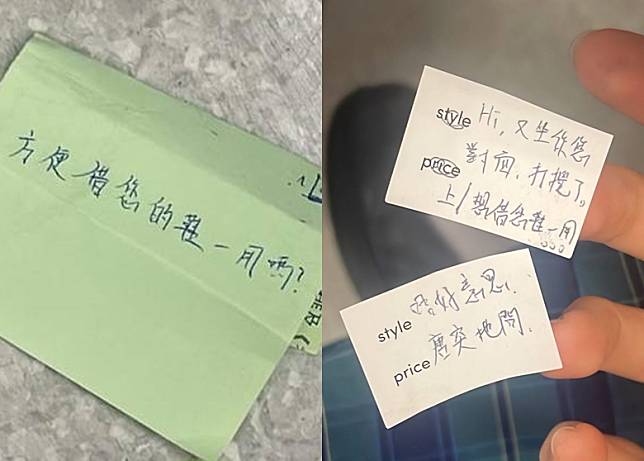 方便借您的鞋一用嗎?
style Hi, 又坐你您
price 對面, 打擾了。
想借您鞋一用
style 好意思,
price 唐突地問.